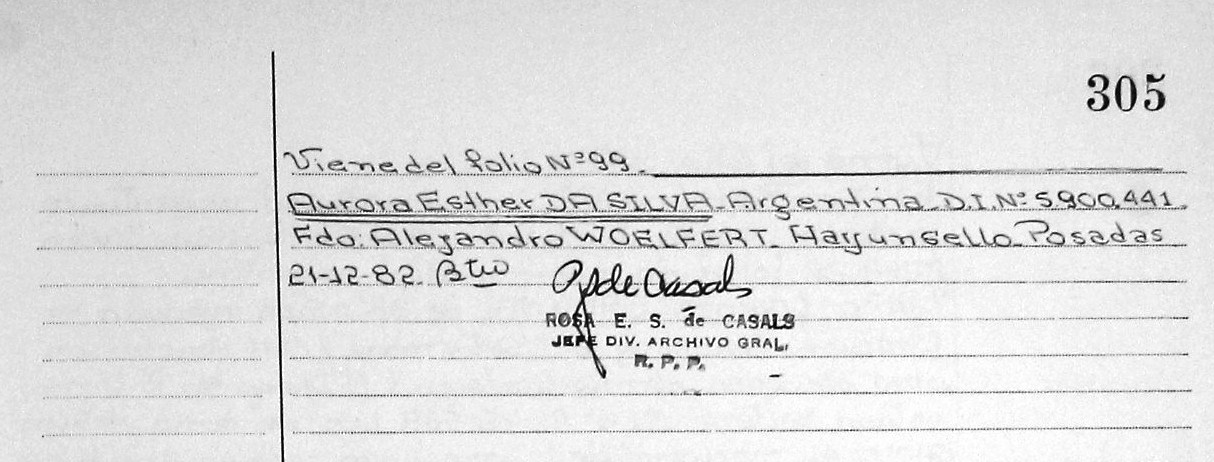 305
Viene del folio Nº 99.
Aurora Esther DA SILVA. Argentina. D.I. Nº 5.900.441.
Fdo: Alejandro WOELFERT. Hay un sello. Posadas
21-12-82.
ROSA E. S. de CASALS
JEFE DIV. ARCHIVO GRAL.
R. P. P.